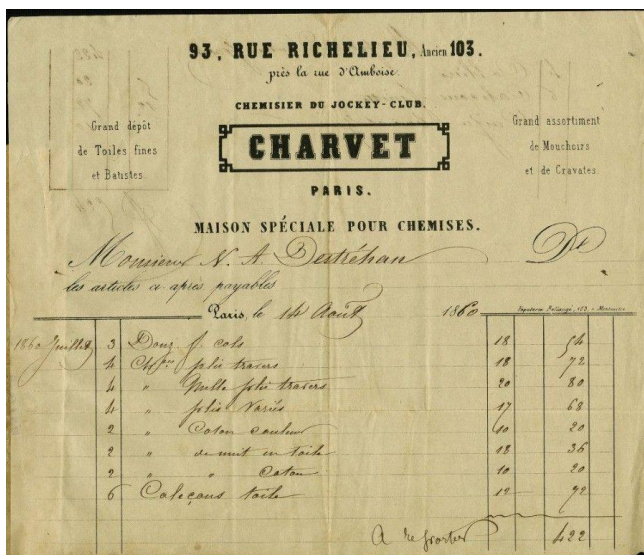 93, RUE RICHELIEU, Ancien 103.
près la rue d'Amboise.
CHEMISIER DU JOCKEY-CLUB.
Grand dépôt
de Toiles fines
et Batistes.
CHARVET
Grand assortiment
de Mouchoirs
et de Cravates.
PARIS.
MAISON SPÉCIALE POUR CHEMISES.
Monsieur N. A. Destréhan Dt
les articles ci après payables
Paris, le 14 Août 1860
1860 Juillet 3 Douz f. cols 18 54
4 plis travers 18 72
4 " Mille plis travers 20 80
4 " plis Variés 17 68
2 " Coton couleur 10 20
2 " de nuit en toile 18 36
2 " " Coton 10 20
6 Caleçons toile 12 72
A reporter 422